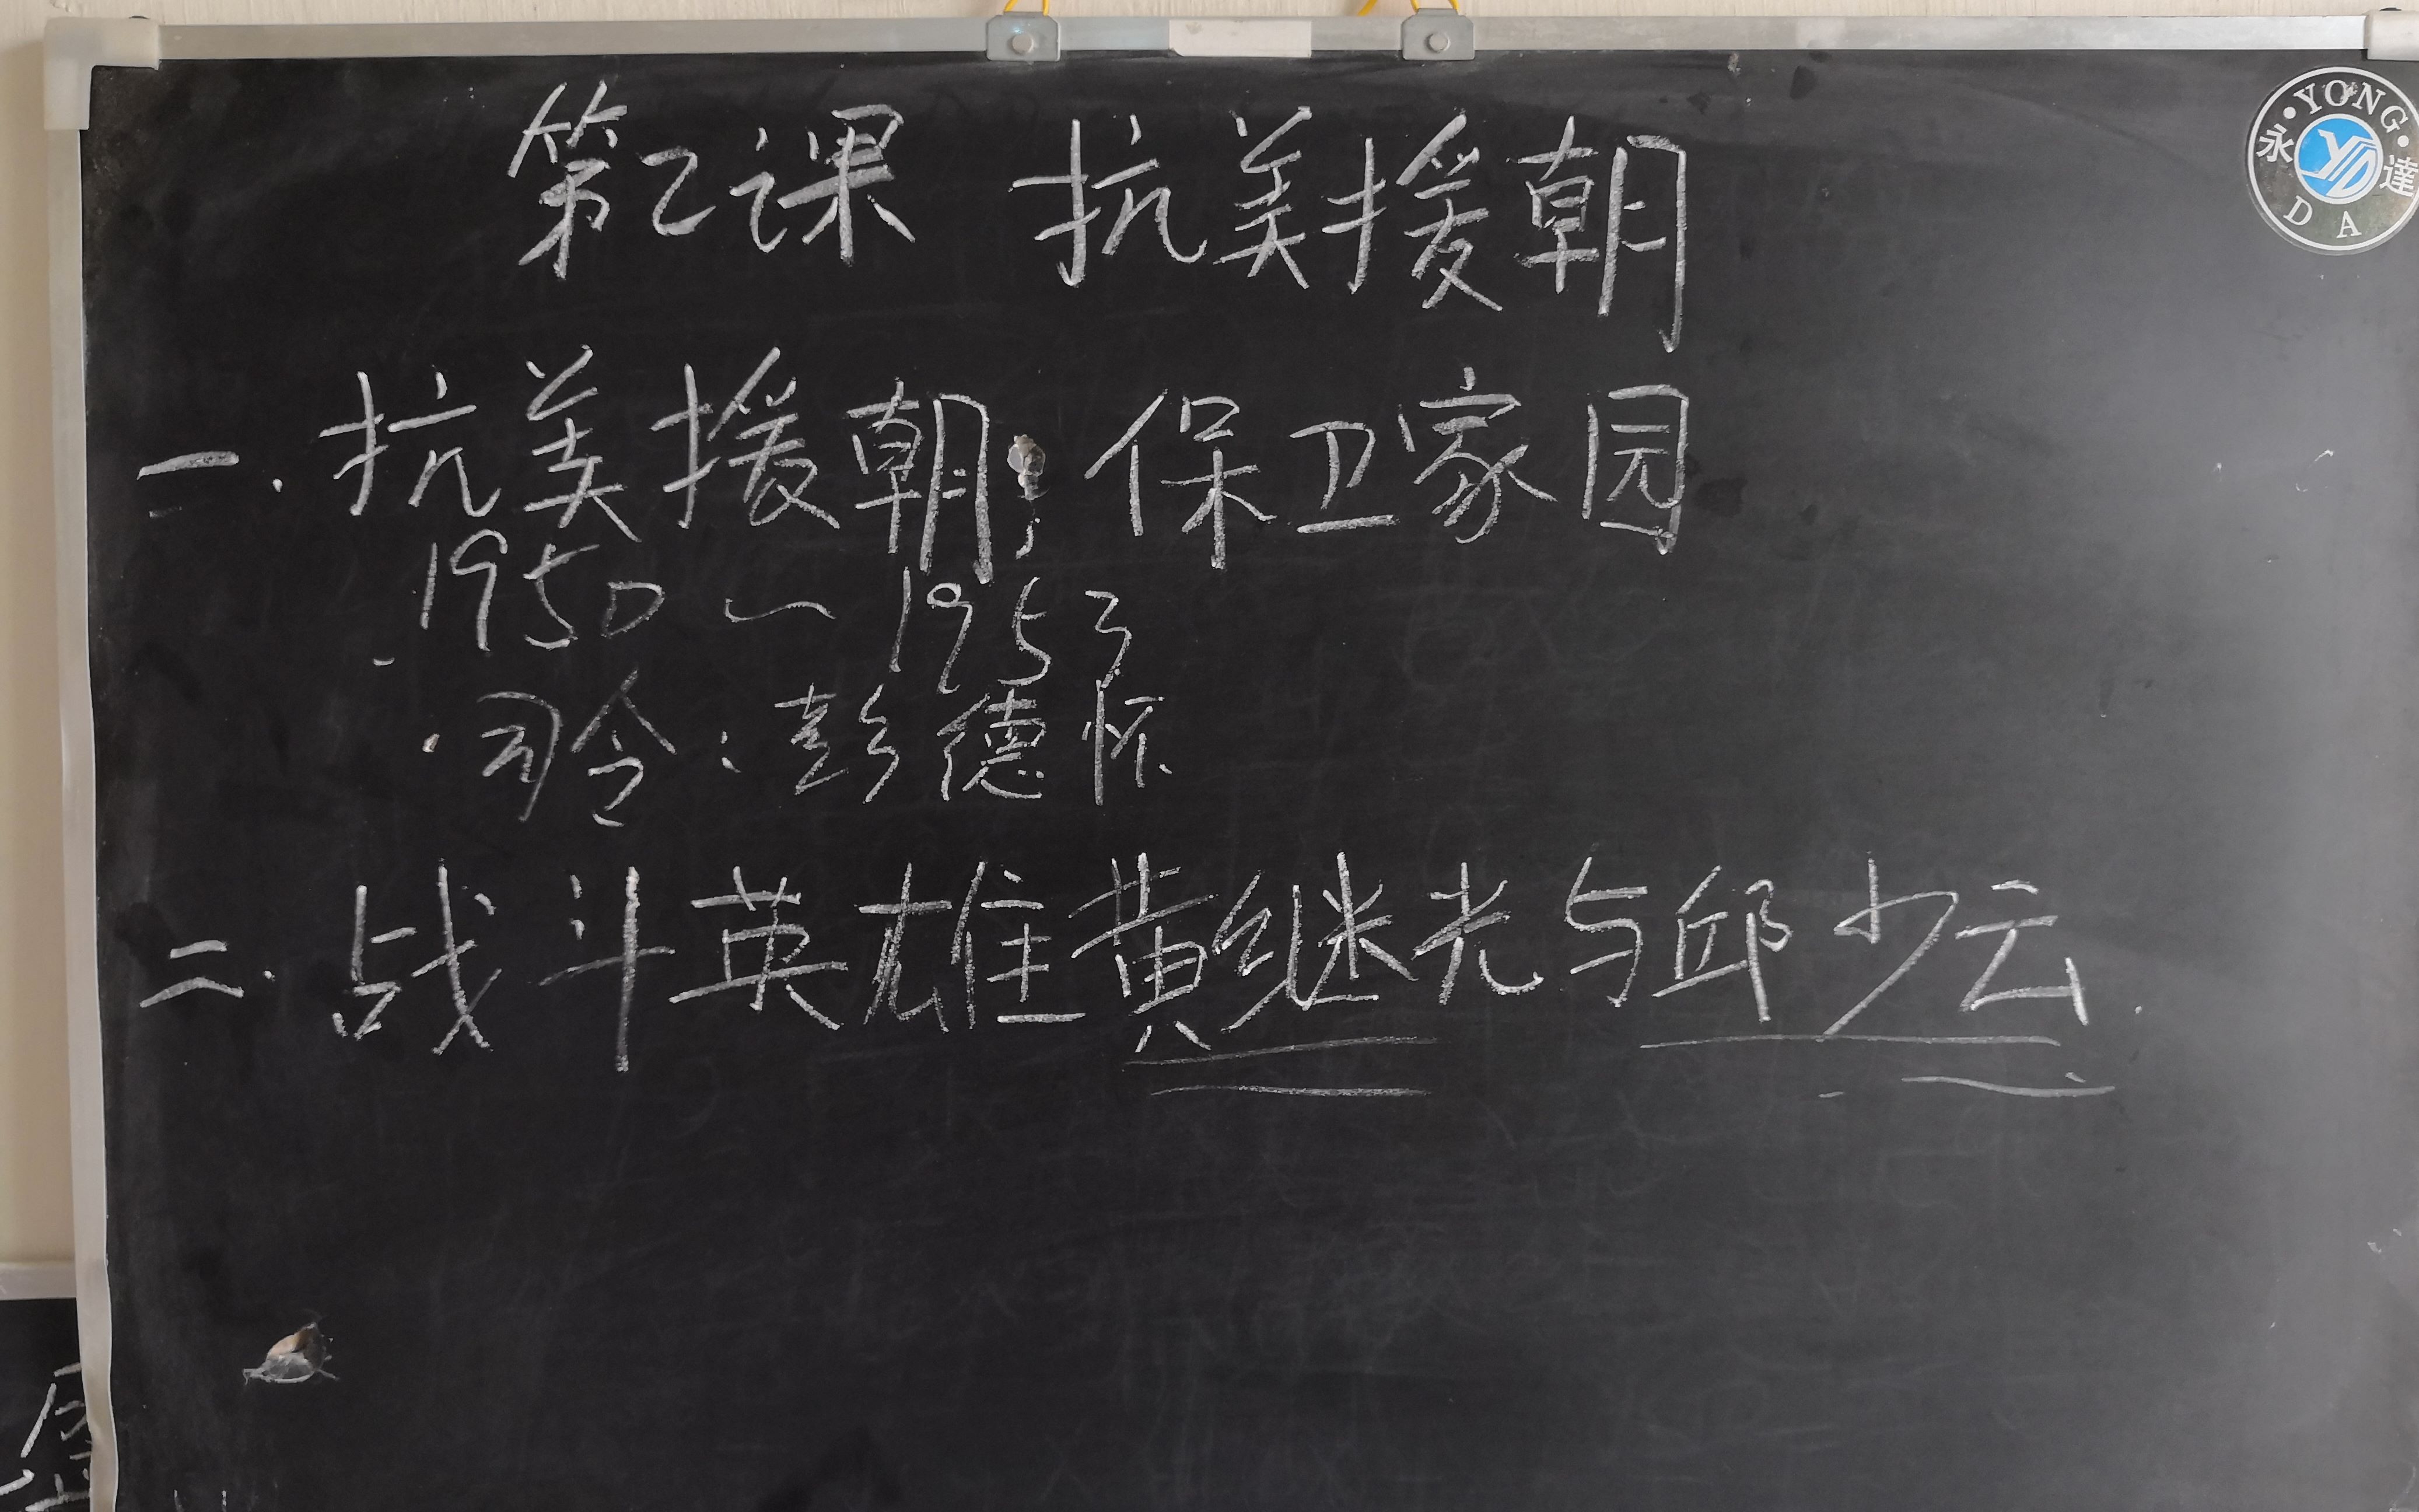 第2课 抗美援朝
一.抗美援朝,保卫家园
1950~1953
司令:彭德怀
二.战斗英雄黄继光与邱少云.
YONG
永 YD 達
DA